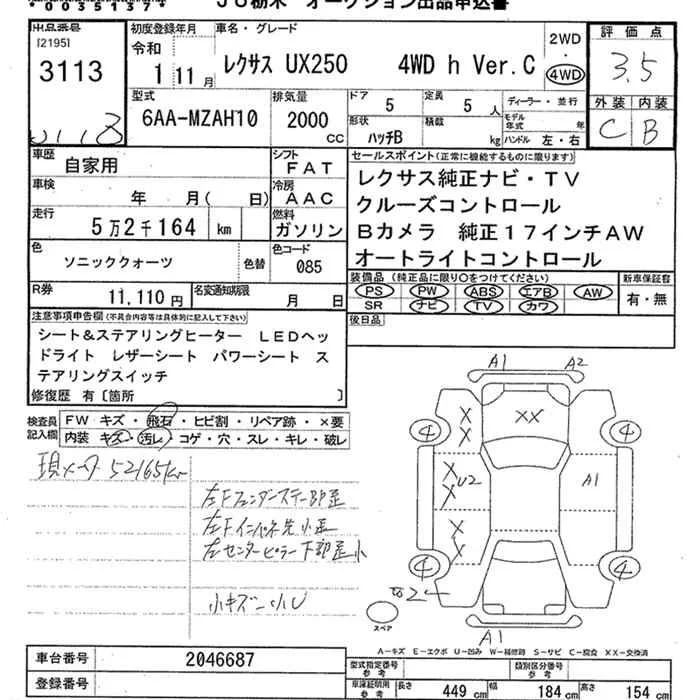 *0035137*
JU栃木 オークション出品申込書
出品番号
[2195]
3113
初度登録年月
令和
1 11月
車名・グレード
レクサス UX250 4WD h Ver.C
2WD
・
4WD
評価点
3.5
外装 内装
C B
型式
6AA-MZAH10
排気量
2000
CC
ドア
5
定員
5 人
形状
ハッチB
積載
kg
ディーラー・並行
モデル年式 年
ハンドル 左・右
車歴
自家用
シフト
FAT
車検
年 月( 日)
冷房
AAC
走行
5万2千164 km
燃料
ガソリン
色
ソニッククォーツ
色替
色コード
085
R券
11,110円
名変通知期限
月 日
セールスポイント(正常に機能するものに限ります)
レクサス純正ナビ・TV
クルーズコントロール
Bカメラ 純正17インチAW
オートライトコントロール
装備品 (純正品に限り○をつけてください)
PS PW ABS エアB AW
SR ナビ TV カワ
新車保証書
有・無
後日品
注意事項申告欄(不具合内容等は具体的に記入して下さい)
シート&ステアリングヒーター LEDヘッ
ドライト レザーシート パワーシート ス
テアリングスイッチ
修復歴 有〔箇所 〕
検査員記入欄
FW キズ・飛石・ヒビ割・リペア跡・×要
内装 キズ・汚レ・コゲ・穴・スレ・キレ・破レ
現メータ 52165km
左Fフェンダーステー部歪
左Fインパネ先小歪
左センターピラー下部歪小
小キズ 小U
A1 A2
XX
X
X
4 4
X
U2
X
A1
X
X
4 4
2
A1
スペア
A-キズ E-エクボ U-凹み W-補修跡 S-サビ C-腐食 XX-交換済
車台番号
2046687
登録番号
型式指定番号
参考
類別区分番号
参考
車庫証明用
参考
長さ 449 cm
幅 184 cm
高さ 154 cm